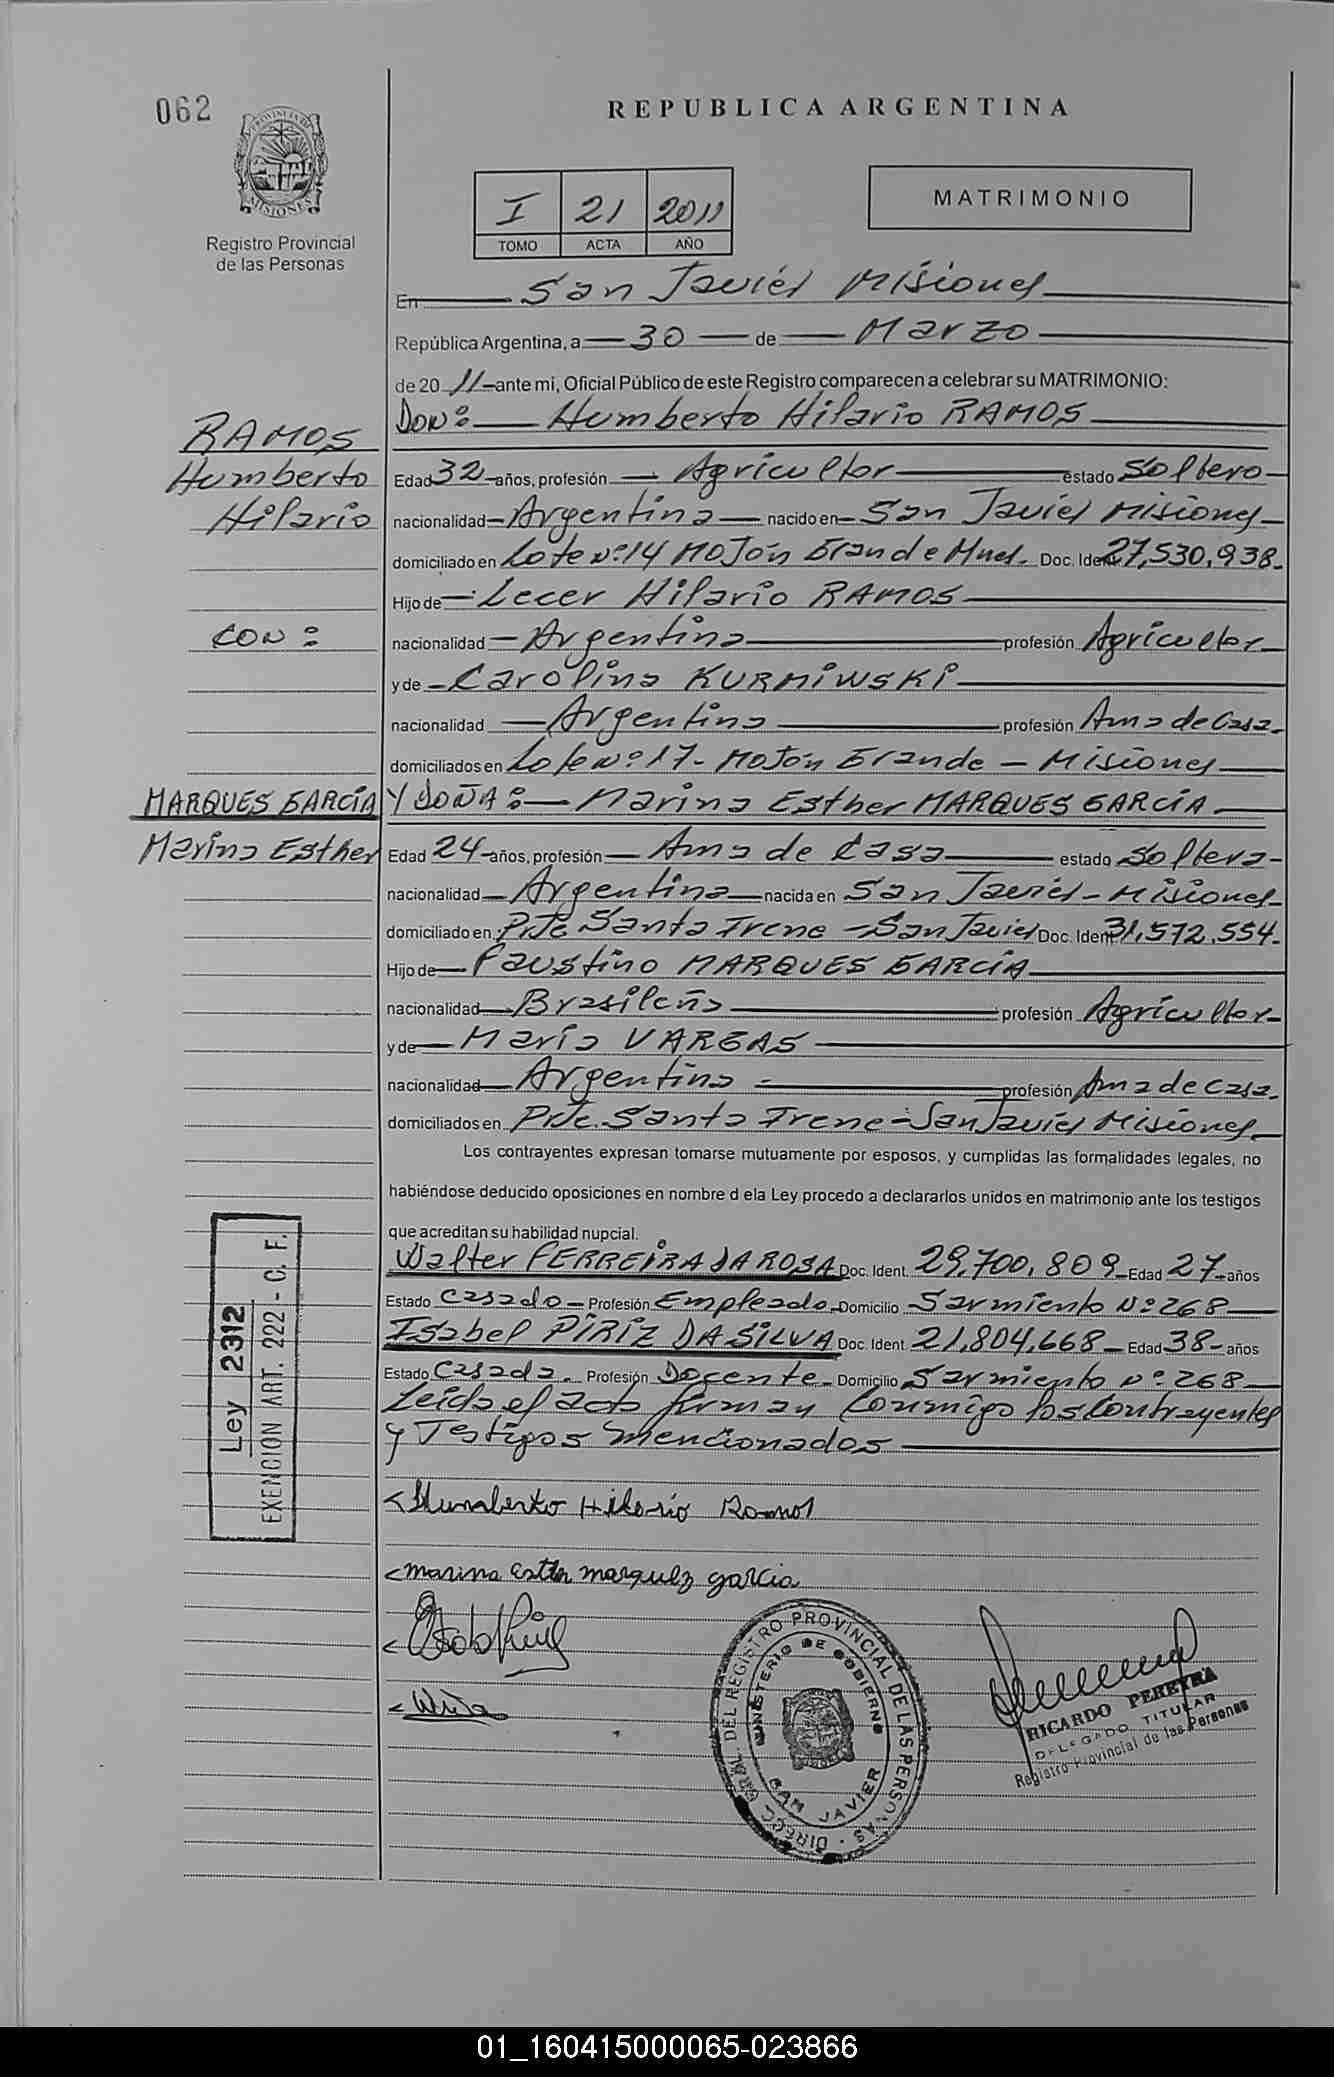 062
PROVINCIA DE
MISIONES
Registro Provincial
de las Personas
REPUBLICA ARGENTINA
I 21 2011
TOMO ACTA AÑO
MATRIMONIO
En San Javier Misiones
República Argentina, a 30 de Marzo
de 20 11 ante mi, Oficial Público de este Registro comparecen a celebrar su MATRIMONIO:
RAMOS
Humberto
Hilario
CON:
MARQUES GARCÍA
Marina Esther
DON: Humberto Hilario RAMOS
Edad 32 años, profesión Agricultor estado Soltero
nacionalidad Argentina nacido en San Javier Misiones
domiciliado en Lote Nº 14 Mojón Grande Mnes. Doc. Ident. 27.530.938.
Hijo de Lecer Hilario RAMOS
nacionalidad Argentina profesión Agricultor
y de Carolina KURMIWSKI
nacionalidad Argentina profesión Ama de Casa.
domiciliados en Lote Nº 17 - Mojón Grande - Misiones
Y DOÑA: Marina Esther MARQUES GARCÍA
Edad 24 años, profesión Ama de Casa estado Soltera
nacionalidad Argentina nacida en San Javier - Misiones
domiciliado en Pje. Santa Irene - San Javier Doc. Ident. 31.572.554.
Hijo de Faustino MARQUES GARCÍA
nacionalidad Brasileña profesión Agricultor
y de María VARGAS
nacionalidad Argentina profesión Ama de Casa.
domiciliados en Pje. Santa Irene - San Javier Misiones
Los contrayentes expresan tomarse mutuamente por esposos, y cumplidas las formalidades legales, no
habiéndose deducido oposiciones en nombre d ela Ley procedo a declararlos unidos en matrimonio ante los testigos
que acreditan su habilidad nupcial.
Walter FERREIRA DA ROSA Doc. Ident. 29.700.809 Edad 27 años
Estado Casado Profesión Empleado Domicilio Sarmiento Nº 268
Isabel PIRIZ DA SILVA Doc. Ident. 21.804.668 Edad 38 años
Estado Casada. Profesión Docente Domicilio Sarmiento Nº 268
Leída el acta firman conmigo los contrayentes
y Testigos mencionados
Ley 2312
EXENCION ART. 222 - C. F.
Humberto Hilario Ramos
marina Esther marquez garcia
DIRECC. GRAL. DEL REGISTRO PROVINCIAL DE LAS PERSONAS
MINISTERIO DE GOBIERNO
SAN JAVIER
RICARDO PEREYRA
DELEGADO TITULAR
Registro Provincial de las Personas
01_160415000065-023866